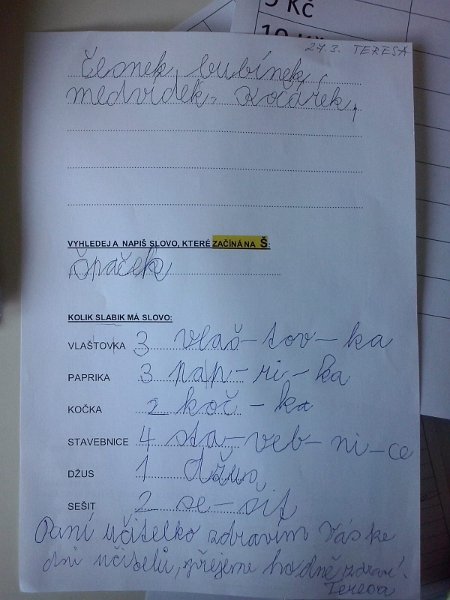 5 Kč
10 Kč
24.3. TEREZA
Člonek, bubínek,
medvídek, Kočárek,
VYHLEDEJ A NAPIŠ SLOVO, KTERÉ ZAČÍNÁ NA Š:
Špaček
KOLIK SLABIK MÁ SLOVO:
VLAŠTOVKA 3 vlaš-tov-ka
PAPRIKA 3 pap-ri-ka
KOČKA 2 koč-ka
STAVEBNICE 4 sta-veb-ni-ce
DŽUS 1 džus
SEŠIT 2 se-šit
Paní učitelko zdravím Vás ke
dni učitelů, přejeme hodně zdraví.
Tereza